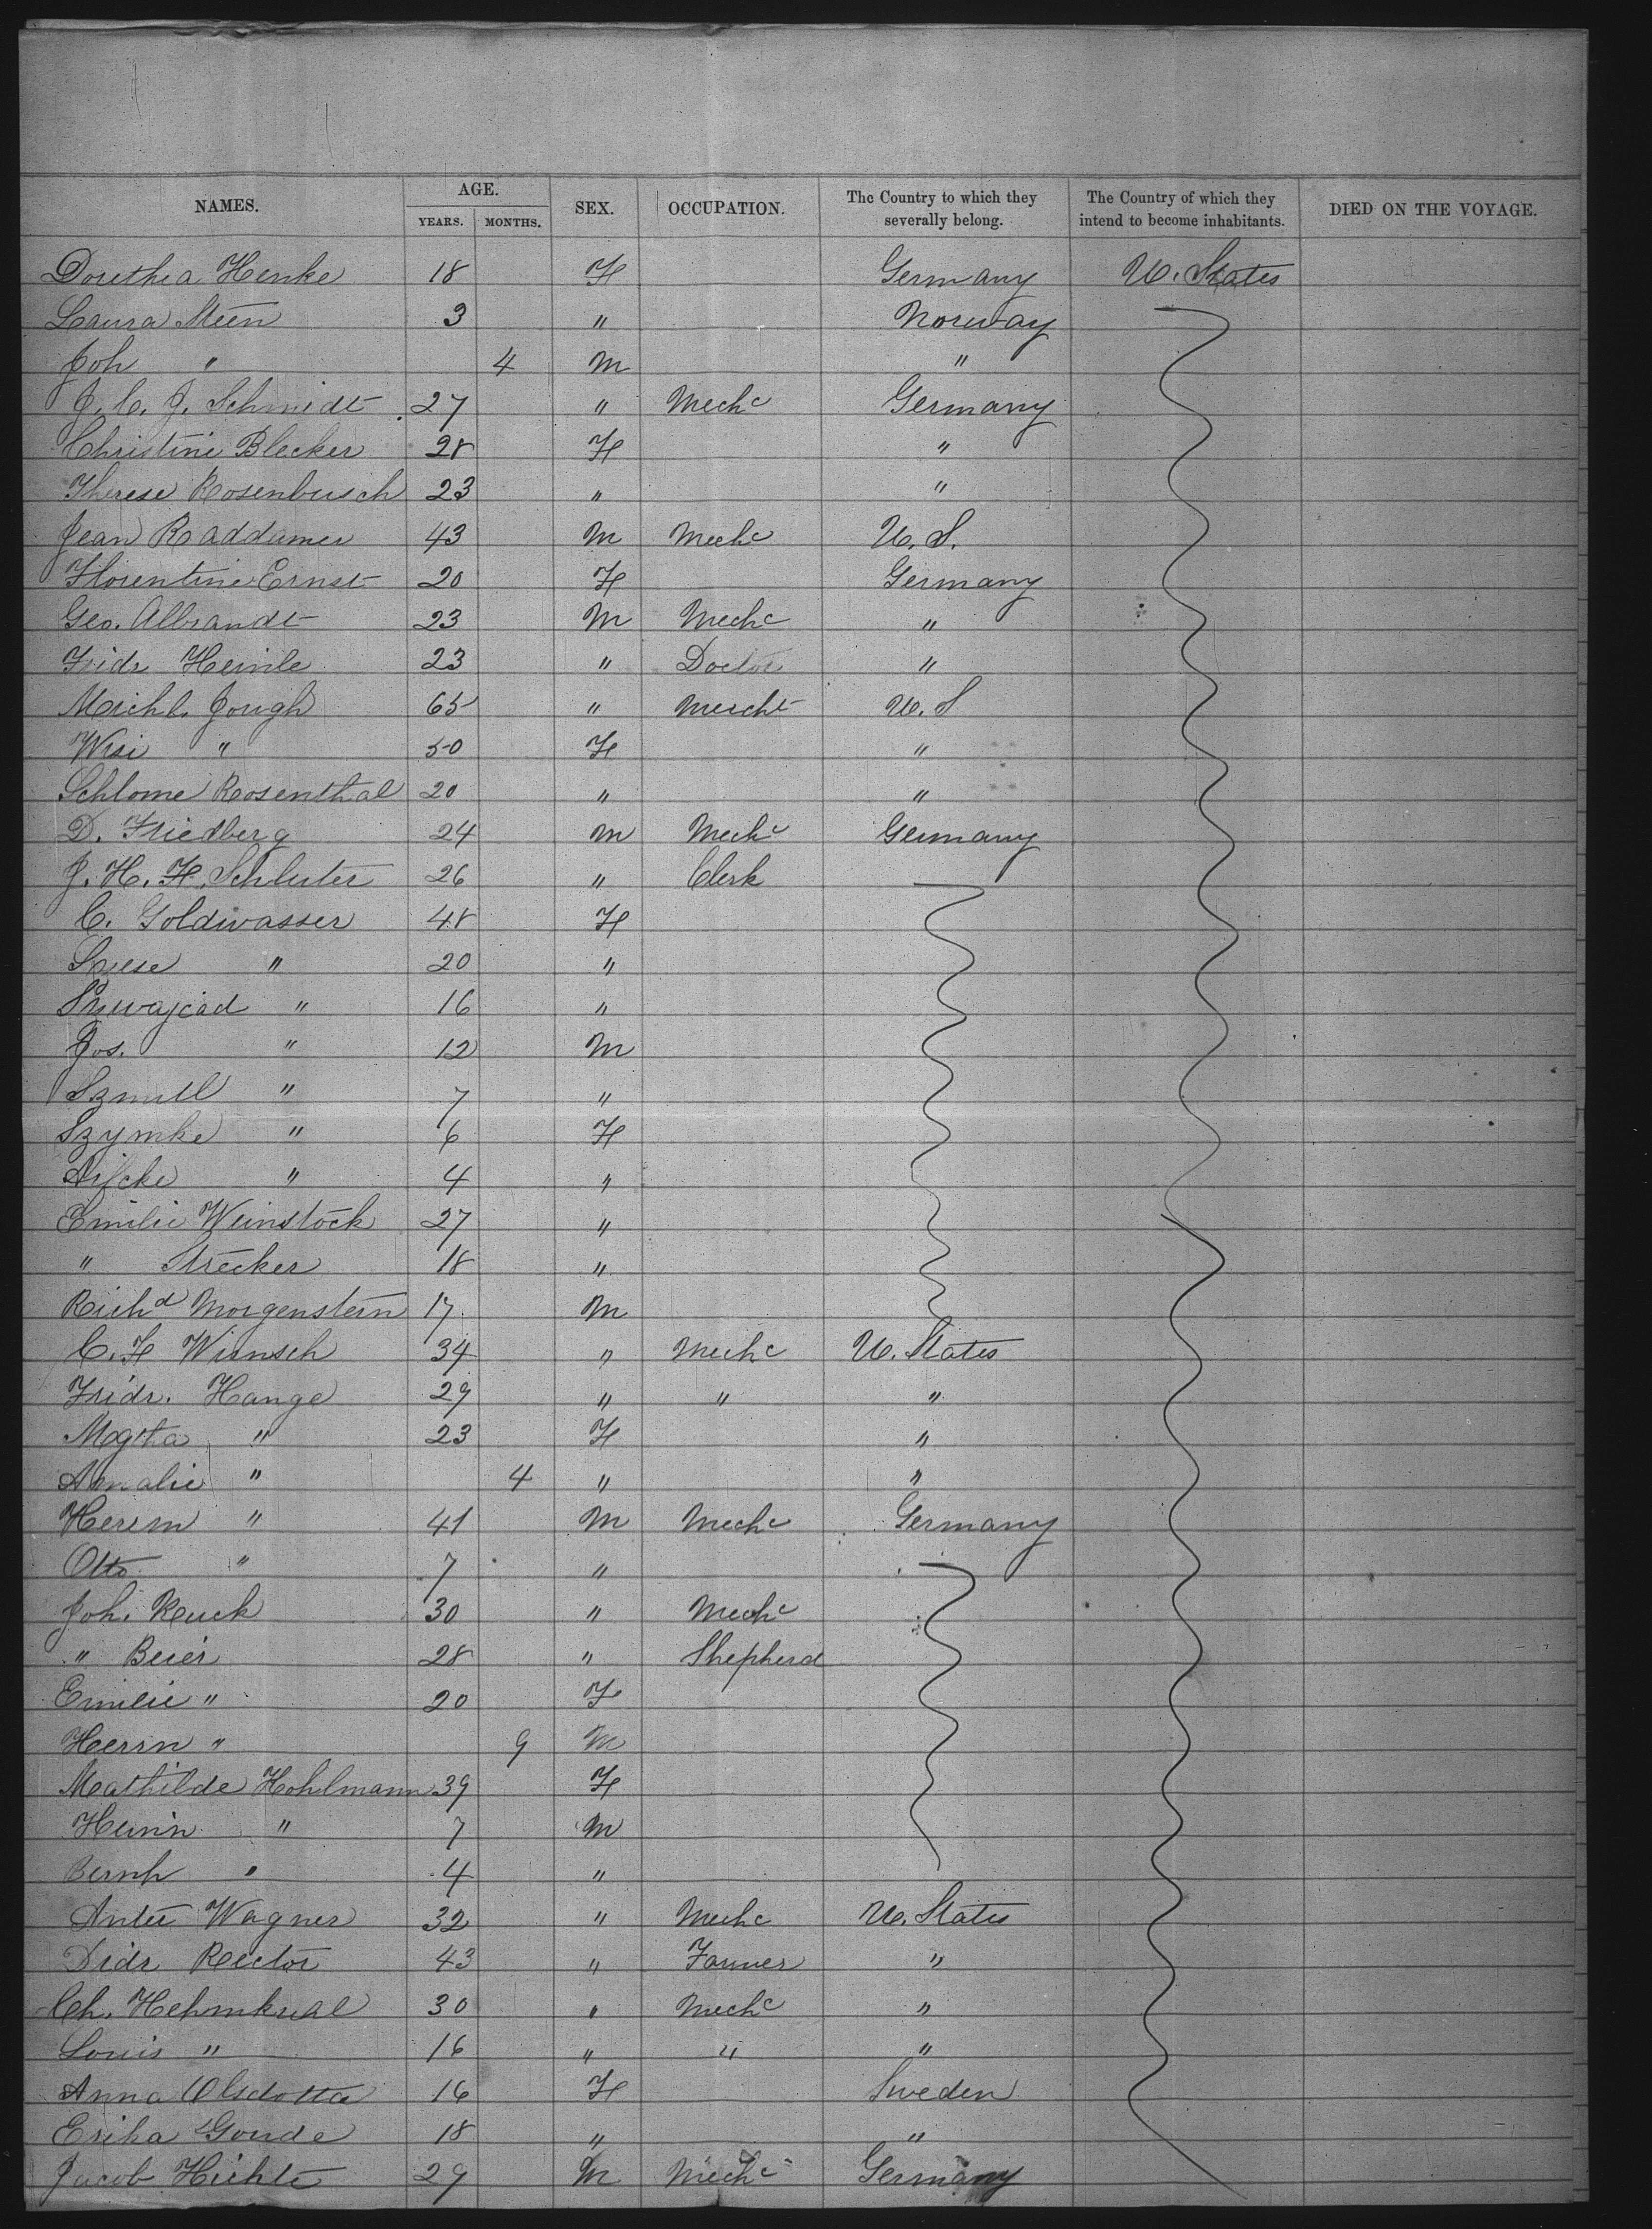 NAMES. AGE. SEX. OCCUPATION. The Country to which they severally belong. The Country of which they intend to become inhabitants. DIED ON THE VOYAGE.
YEARS. MONTHS.
Dorethea Henke 18 F Germany U. States
Laura Meen 3 " Norway
Joh " 4 M "
J. C. J. Schmidt 27 " Mechc Germany
Christine Blecker 28 F "
Therese Rosenbusch 23 " "
Jean Raddamer 43 M Mechc U. S.
Florentine Ernst 20 F Germany
Geo. Albrandt 23 M Mechc "
Fridr Heinle 23 " Doctor "
Michl. Jough 65 " Mercht U. S
Wisi " 50 F "
Schlome Rosenthal 20 " "
D. Friedberg 24 M Mechc Germany
J. H. F. Schluter 26 " Clerk
C. Goldwasser 48 F
" 20 "
" 16 "
Jos. " 12 M
Szmull " 7 "
Szymke " 6 F
Rifcke " 4 "
Emilie Weinstock 27 "
" Strecker 18 "
Richd Morgenstern 17 M
C. F Wunsch 34 " Mechc U. States
Fridr. Hange 29 " " "
Mgtha " 23 F "
Amalie " 4 " "
Herrm " 41 M Mechc Germany
Otto " 7 "
Joh. Reuck 30 " Mechc
" Beier 28 " Shepherd
Emilie " 20 F
Herrn " 9 M
Mathilde Hohlmann 39 F
Heinn " 7 M
Bernh " 4 "
Wagner 32 " Mechc U. States
Didr Rector 43 " Farmer "
Ch. Hehmkual 30 " Mechc "
Louis " 16 " " "
Anna Olsdotta 16 F Sweden
Erika Goude 18 " "
Jacob Hichte 29 M Mechc Germany